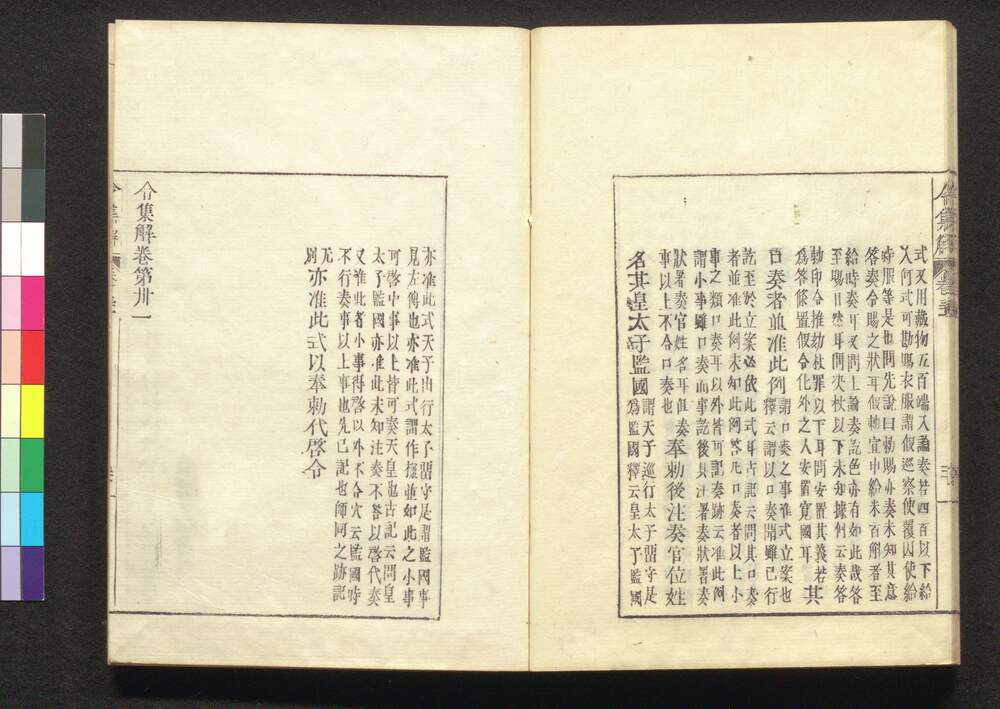 式又用藏物五百端入論奏若四百以下給
入何式可勘賜衣服謂假巡察使覆囚使給
時服等是也問先說曰勅賜亦奏未知其意
答奏令賜之狀耳假勅宜中給米百斛者至
給時奏耳又問上論奏訖色亦有如此哉答
至賜日然耳問决杖以下未知據何云奏答
勅令推劾杖罪以下耳問安置其義若
爲答條置假令化外之人安置寬國耳其
口奏者並准此例謂口奏之事准式立案也
釋云謂以口奏聞雖已行
訖至於立案必依此式耳古記云問其口奏
者並准此例未知此例答凡口奏者以上小
事之類口奏耳以外皆可記奏跡云准此例
謂小事雖口奏而事訖後具注署奏狀署奏
狀署奏官姓名耳但奏奉勅後注奏官位姓
事以上不合口奏也
名其皇太子監國謂天子巡行太子留守是
爲監國釋云皇太子監國
令集解
亦准此式天子出行太子留守是謂監國事
見左傳也亦准此式謂作樣並如此之小事
可啓中事以上皆可奏天皇也古記云問皇
太子監國亦准此未知注奏不答以啓代奏
又准此者小事得啓以外不合穴云監國時
不行奏事以上事也先已記也師同之跡記
无別亦准此式以奉勅代啓令
令集解卷第卅一